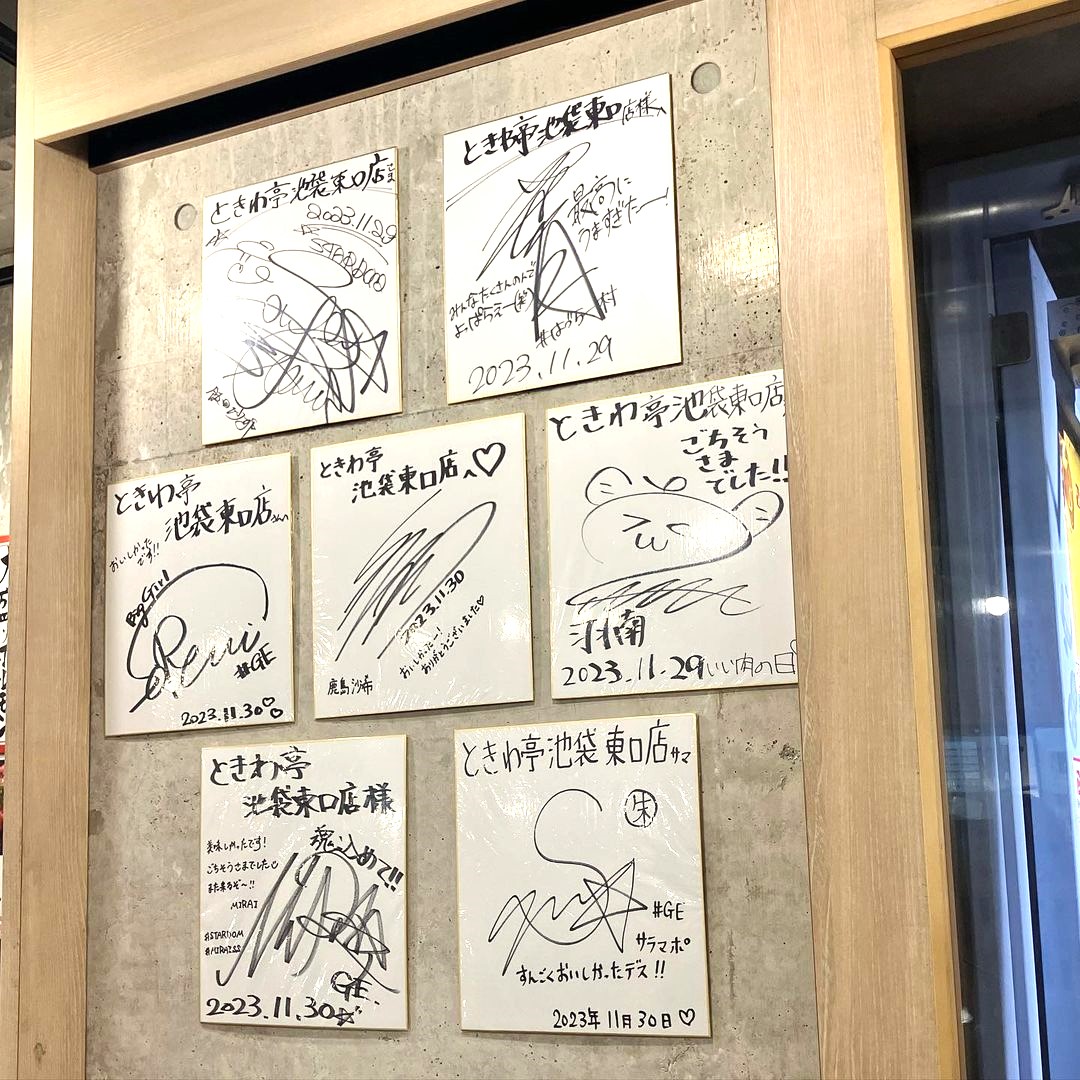 ときわ亭池袋東口店
2023.11.29
STARDOM
ときわ亭池袋東口店様へ
最高に
うますぎたー!
みんなたくさんのんで
よっぱらえー(笑)
2023.11.29
ときわ亭
池袋東口店さんへ
おいしかった
です!!
Big Girl
#GE
2023.11.30♡♡
ときわ亭
池袋東口店へ♡
2023.11.30
おいしかったー!
ありがとうございました♡
鹿島沙希
ときわ亭池袋東口店
ごちそう
さま
でした!!
羽南
2023.11.29いい肉の日
ときわ亭
池袋東口店様
魂込めて!!
美味しかったです!
ごちそうさまでした
また来るぞ〜!!
MIRAI
#STARDOM
GE.
2023.11.30☆
ときわ亭池袋東口店サマ
朱
#GE
サラマポ
すんごくおいしかったデス!!
2023年11月30日♡